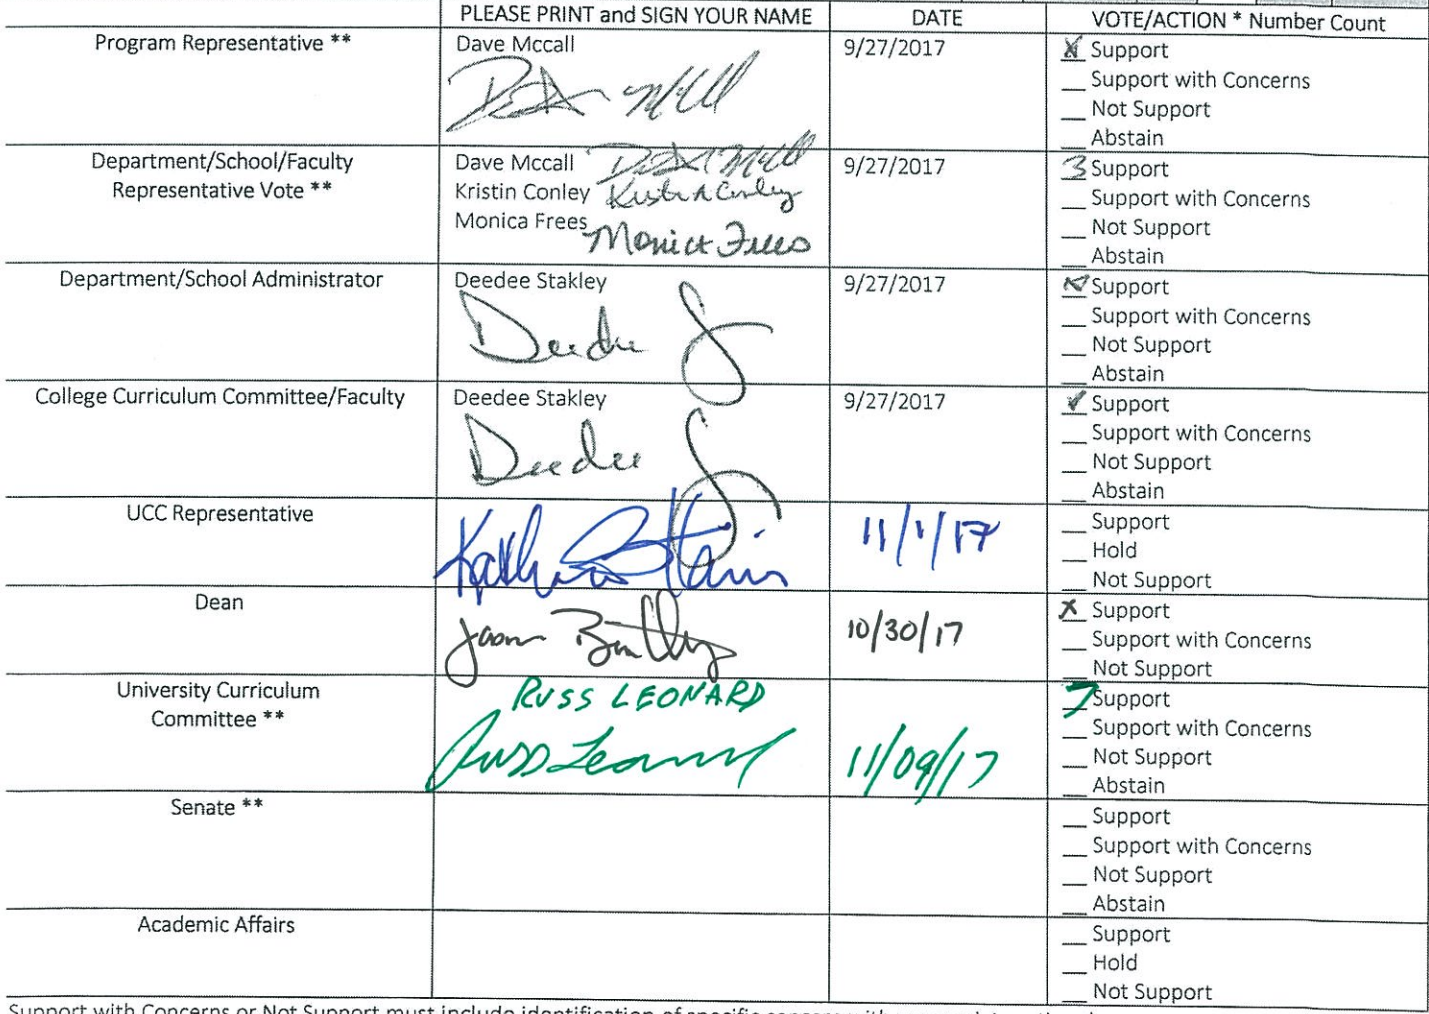 PLEASE PRINT and SIGN YOUR NAME DATE VOTE/ACTION * Number Count
Program Representative ** Dave Mccall 9/27/2017 X Support
Support with Concerns
Not Support
Abstain
Department/School/Faculty Dave Mccall 9/27/2017 3 Support
Representative Vote ** Kristin Conley Kristin A Conley Support with Concerns
Monica Frees Monica Frees Not Support
Abstain
Department/School Administrator Deedee Stakley 9/27/2017 Support
Deedee S Support with Concerns
Not Support
Abstain
College Curriculum Committee/Faculty Deedee Stakley 9/27/2017 ✓ Support
Deedee S Support with Concerns
Not Support
Abstain
UCC Representative 11/1/17 Support
Hold
Not Support
Dean Jason 10/30/17 X Support
Support with Concerns
Not Support
University Curriculum RUSS LEONARD 7 Support
Committee ** Russ Leonard 11/09/17 Support with Concerns
Not Support
Abstain
Senate ** Support
Support with Concerns
Not Support
Abstain
Academic Affairs Support
Hold
Not Support
Support with Concerns or Not Support must include identification of specific concern with